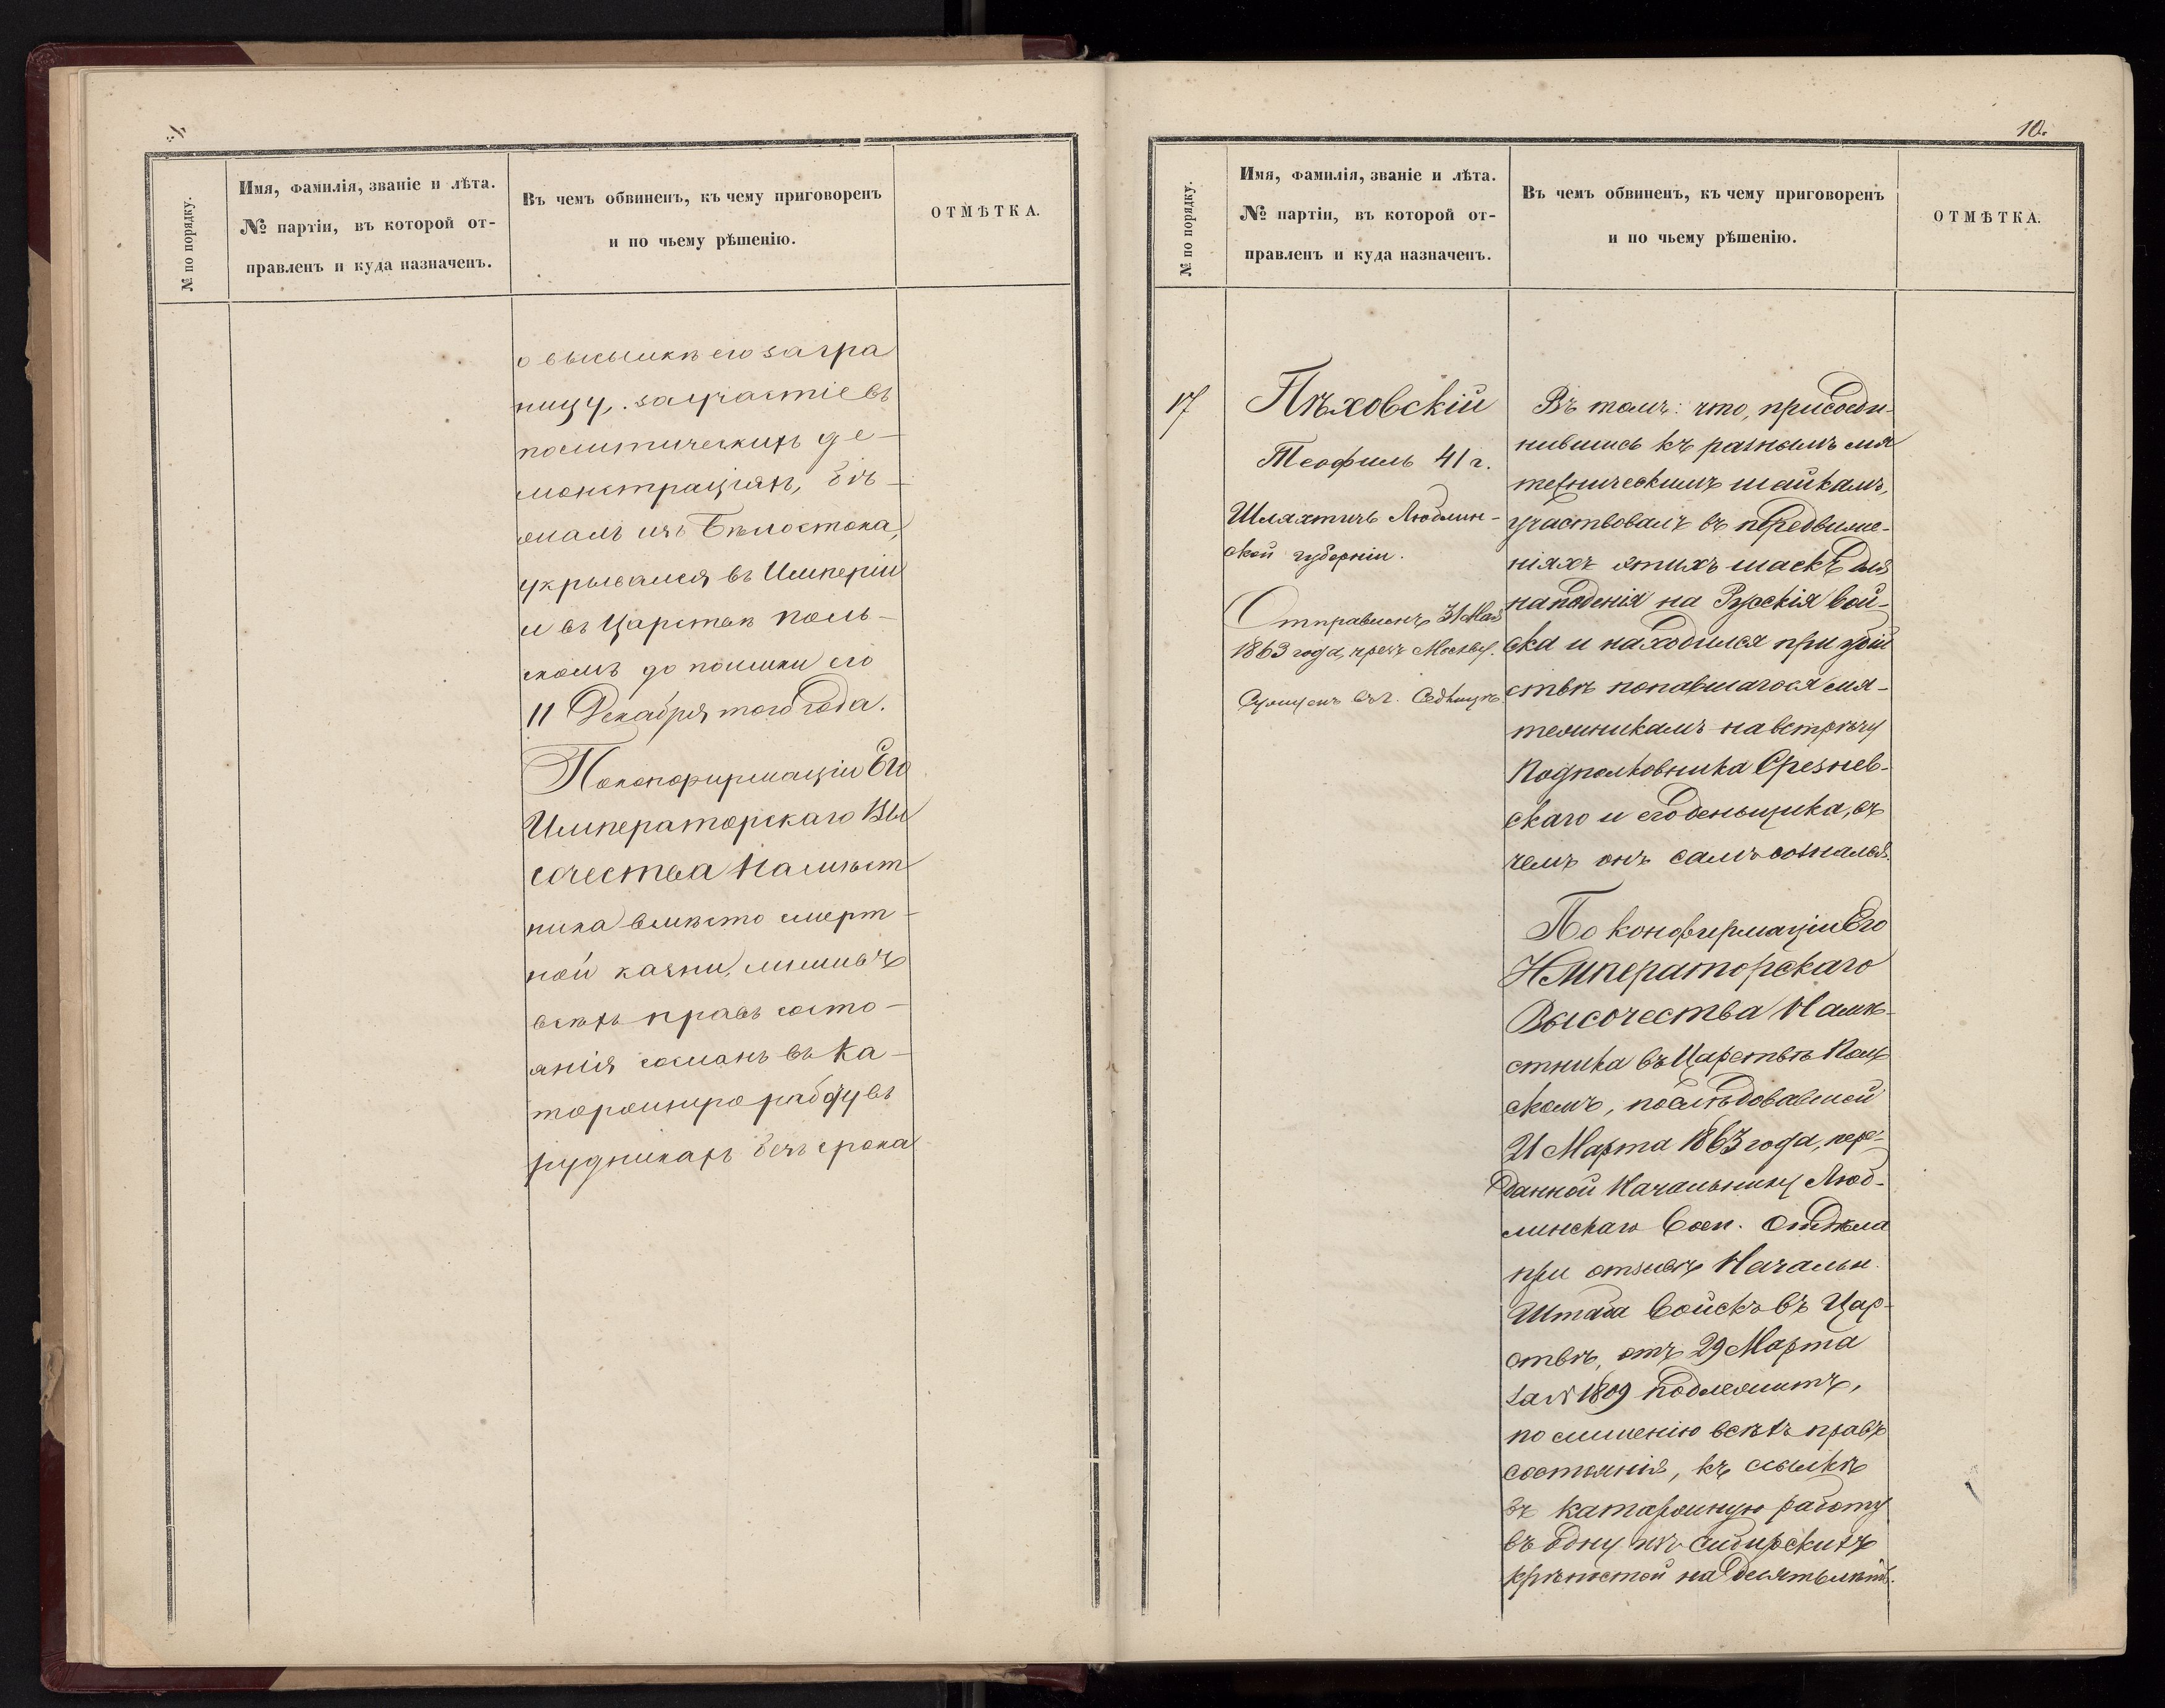 № по порядку.
Имя, фамилія, званіе и лѣта.
№ партіи, въ которой от-
правленъ и куда назначенъ.
Въ чемъ обвиненъ, къ чему приговоренъ
и по чьему рѣшенію.
ОТМѢТКА.
о высылкѣ его загра
ницу, за участіе въ
политическихъ де-
монстраціяхъ, бѣ-
жалъ изъ Бѣлостока,
укрывался въ Имперіи
и въ Царствѣ Поль-
скомъ до поимки его
11 Декабря того года.
По конфирмаціи Его
Императорскаго Вы
сочества Намѣст
ника вмѣсто смерт-
ной казни, лишивъ
всѣхъ правъ состо-
янія сосланъ въ Ка-
торжную работу въ
рудникахъ безъ срока
10.
№ по порядку.
Имя, фамилія, званіе и лѣта.
№ партіи, въ которой от-
правленъ и куда назначенъ.
Въ чемъ обвиненъ, къ чему приговоренъ
и по чьему рѣшенію.
ОТМѢТКА.
17
Пѣховскій
Теофиль 41 г.
Шляхтичъ Люблин-
ской губерніи.
Отправленъ 31 Мая
1863 года, чрезъ Москву.
въ г. Сѣдльцѣ.
Въ томъ: что, присоеди-
нившись къ разнымъ мя
тежническимъ шайкамъ,
участвовалъ въ передвиже-
ніяхъ этихъ шаекъ для
нападенія на Русскія вой-
ска и находился при убій
ствѣ попавшагося мя-
тежникамъ на встрѣчу
Подполковника Срезнев-
скаго и его деньщика, въ
чемъ онъ самъ сознался.
По конфирмаціи Его
Императорскаго
Высочества Намѣ-
стника въ Царствѣ Поль
скомъ, послѣдовавшей
21 Марта 1863 года, пере-
данной Начальнику Люб-
линскаго Воен. Отдѣла
при отзывѣ Начальн.
Штаба Войскъ въ Цар-
ствѣ, отъ 29 Марта
за № 1809 подлежитъ,
по лишенію всѣхъ правъ
состоянія, къ ссылкѣ
въ каторжную работу
въ одну изъ сибирскихъ
крѣпостей на десять лѣтъ.